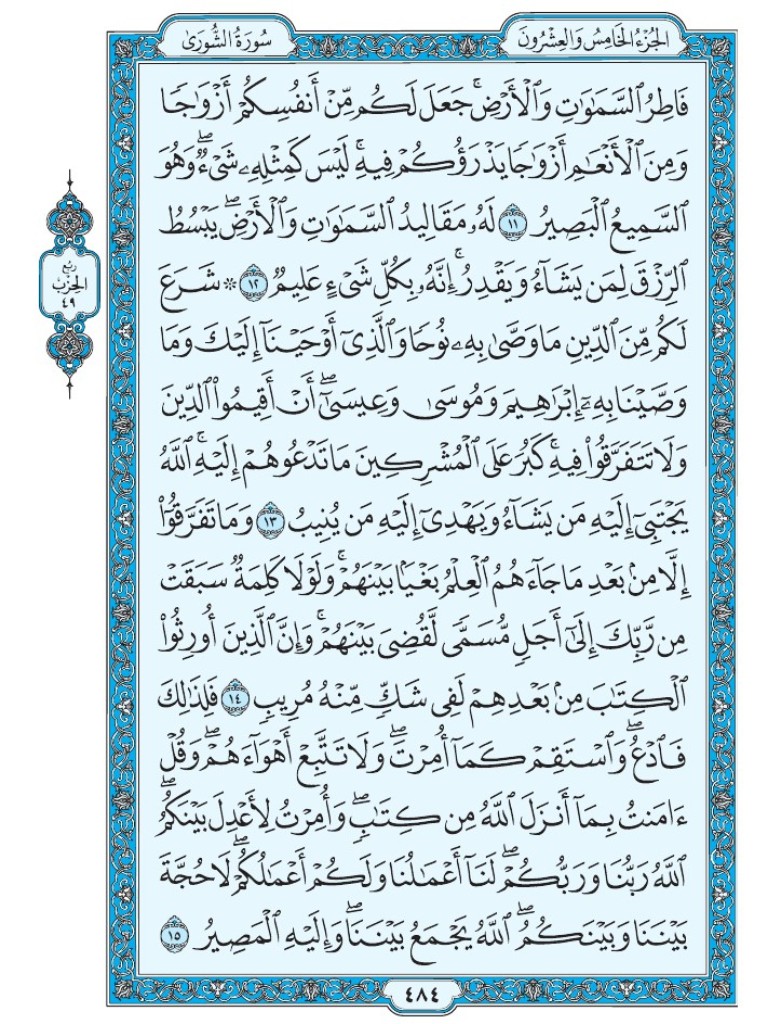 الجزء الخامس والعشرون
سورة الشورى
فَاطِرُ ٱلسَّمَٰوَٰتِ وَٱلْأَرْضِ ۚ جَعَلَ لَكُم مِّنْ أَنفُسِكُمْ أَزْوَٰجًا
وَمِنَ ٱلْأَنْعَٰمِ أَزْوَٰجًا يَذْرَؤُكُمْ فِيهِ ۚ لَيْسَ كَمِثْلِهِۦ شَىْءٌ ۖ وَهُوَ
ٱلسَّمِيعُ ٱلْبَصِيرُ ١١ لَهُۥ مَقَالِيدُ ٱلسَّمَٰوَٰتِ وَٱلْأَرْضِ ۖ يَبْسُطُ
ٱلرِّزْقَ لِمَن يَشَآءُ وَيَقْدِرُ ۚ إِنَّهُۥ بِكُلِّ شَىْءٍ عَلِيمٌ ١٢ ۞ شَرَعَ
لَكُم مِّنَ ٱلدِّينِ مَا وَصَّىٰ بِهِۦ نُوحًا وَٱلَّذِىٓ أَوْحَيْنَآ إِلَيْكَ وَمَا
وَصَّيْنَا بِهِۦٓ إِبْرَٰهِيمَ وَمُوسَىٰ وَعِيسَىٰٓ ۖ أَنْ أَقِيمُوا۟ ٱلدِّينَ
وَلَا تَتَفَرَّقُوا۟ فِيهِ ۚ كَبُرَ عَلَى ٱلْمُشْرِكِينَ مَا تَدْعُوهُمْ إِلَيْهِ ۚ ٱللَّهُ
يَجْتَبِىٓ إِلَيْهِ مَن يَشَآءُ وَيَهْدِىٓ إِلَيْهِ مَن يُنِيبُ ١٣ وَمَا تَفَرَّقُوٓا۟
إِلَّا مِنۢ بَعْدِ مَا جَآءَهُمُ ٱلْعِلْمُ بَغْيًۢا بَيْنَهُمْ ۚ وَلَوْلَا كَلِمَةٌ سَبَقَتْ
مِن رَّبِّكَ إِلَىٰٓ أَجَلٍ مُّسَمًّى لَّقُضِىَ بَيْنَهُمْ ۚ وَإِنَّ ٱلَّذِينَ أُورِثُوا۟
ٱلْكِتَٰبَ مِنۢ بَعْدِهِمْ لَفِى شَكٍّ مِّنْهُ مُرِيبٍ ١٤ فَلِذَٰلِكَ
فَٱدْعُ ۖ وَٱسْتَقِمْ كَمَآ أُمِرْتَ ۖ وَلَا تَتَّبِعْ أَهْوَآءَهُمْ ۖ وَقُلْ
ءَامَنتُ بِمَآ أَنزَلَ ٱللَّهُ مِن كِتَٰبٍ ۖ وَأُمِرْتُ لِأَعْدِلَ بَيْنَكُمُ ۖ
ٱللَّهُ رَبُّنَا وَرَبُّكُمْ ۖ لَنَآ أَعْمَٰلُنَا وَلَكُمْ أَعْمَٰلُكُمْ ۖ لَا حُجَّةَ
بَيْنَنَا وَبَيْنَكُمُ ۖ ٱللَّهُ يَجْمَعُ بَيْنَنَا ۖ وَإِلَيْهِ ٱلْمَصِيرُ ١٥
ربع
الحزب
٤٩
٤٨٤